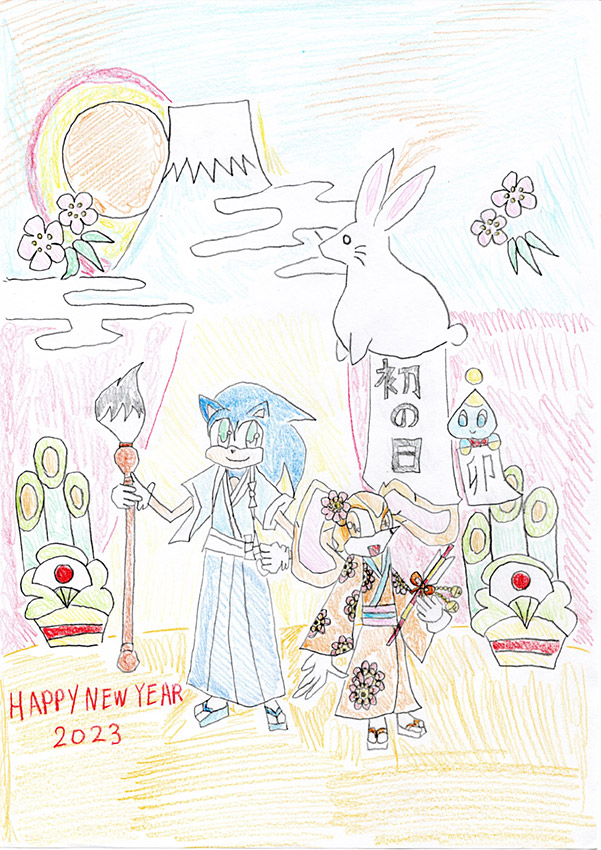 初の日
卯
HAPPY NEW YEAR
2023